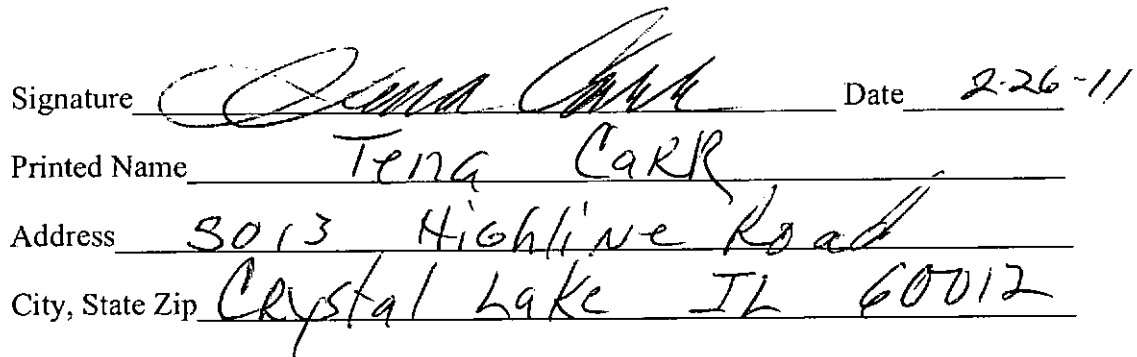 Signature Tena Carr Date 2-26-11
Printed Name Tena CaRR
Address 3013 Highline Road
City, State Zip CRystal Lake IL 60012